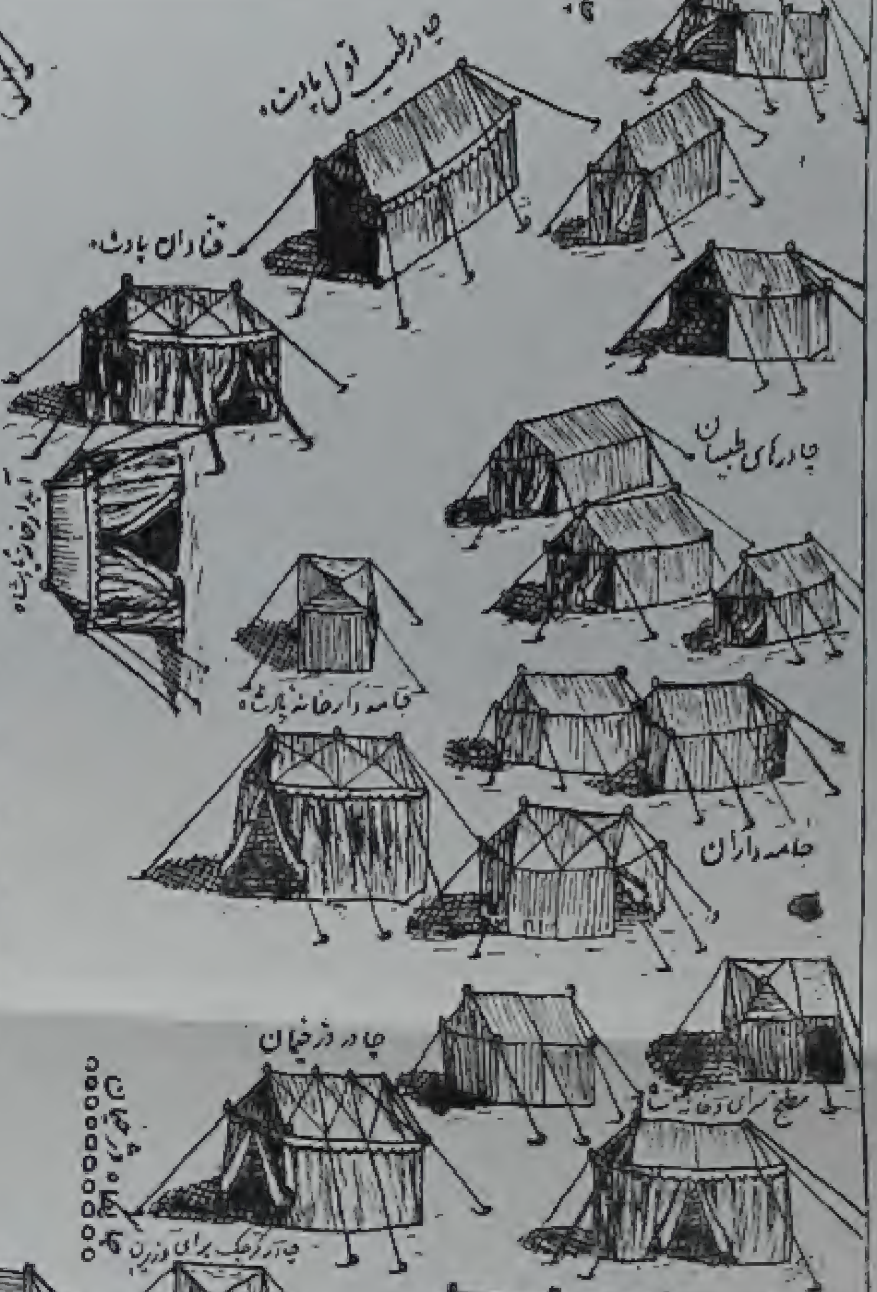 چادر طبیب اول پادشاه
قنادان پادشاه
چادرهای طبیبان
آبدارخانه پادشاه
جامه دارخانه پادشاه
جامه داران
چادر
مطبخ برای
چادر کوچک برای